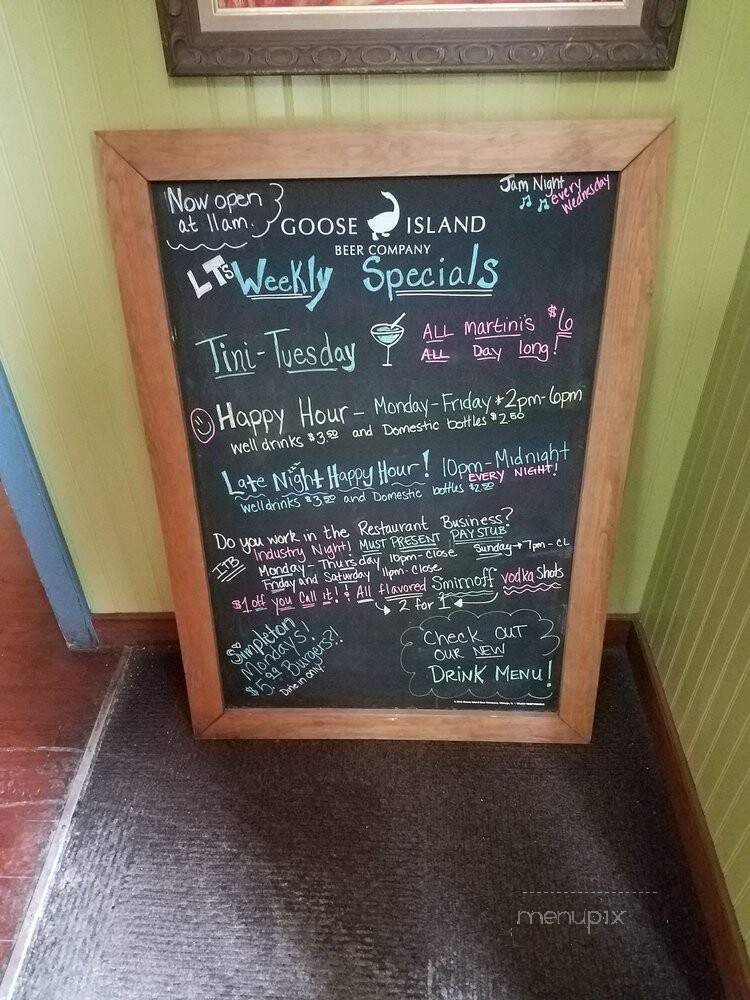 Now open
at 11am.
Jam Night
every
Wednesday
GOOSE ISLAND
BEER COMPANY
LT's Weekly Specials
Tini-Tuesday
ALL martini's $6
ALL Day long!
Happy Hour - Monday-Friday * 2pm-6pm
well drinks $3.50 and Domestic bottles $2.50
Late Night Happy Hour! 10pm-Midnight
EVERY NIGHT!
well drinks $3.50 and Domestic bottles $2.50
Do you work in the Restaurant Business?
Industry Night! MUST PRESENT PAYSTUB
ITB
Monday-Thursday 10pm-close Sunday→7pm-CL
Friday and Saturday 11pm-close
$1 off you Call it!! All flavored Smirnoff vodka Shots
2 for 1
Simpleton
Mondays!
$5.99 Burgers?!!
Dine in only
Check out
our new
Drink Menu!
menupix